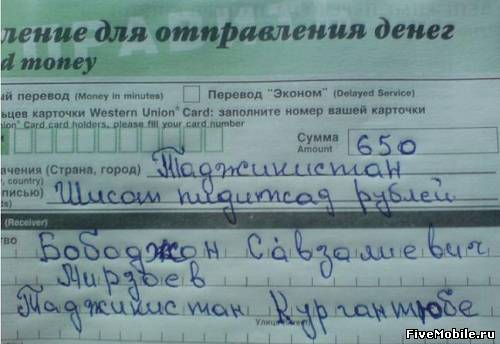 ПРАВИ
ление для отправления денег
d money
ый перевод (Money in minutes) Перевод "Эконом" (Delayed Service)
ьцев карточки Western Union Card: заполните номер вашей карточки
nion Card card holders, please fill your card number
Сумма
Amount 650
ачения (Страна, город) Таджикистан
, country)
писью) Шисат пидитсад рублей
ds)
(Receiver)
тво Бободжон Савзалиевич
Мирзоев
Таджикистан Кургантюбе
Улица
FiveMobile.ru